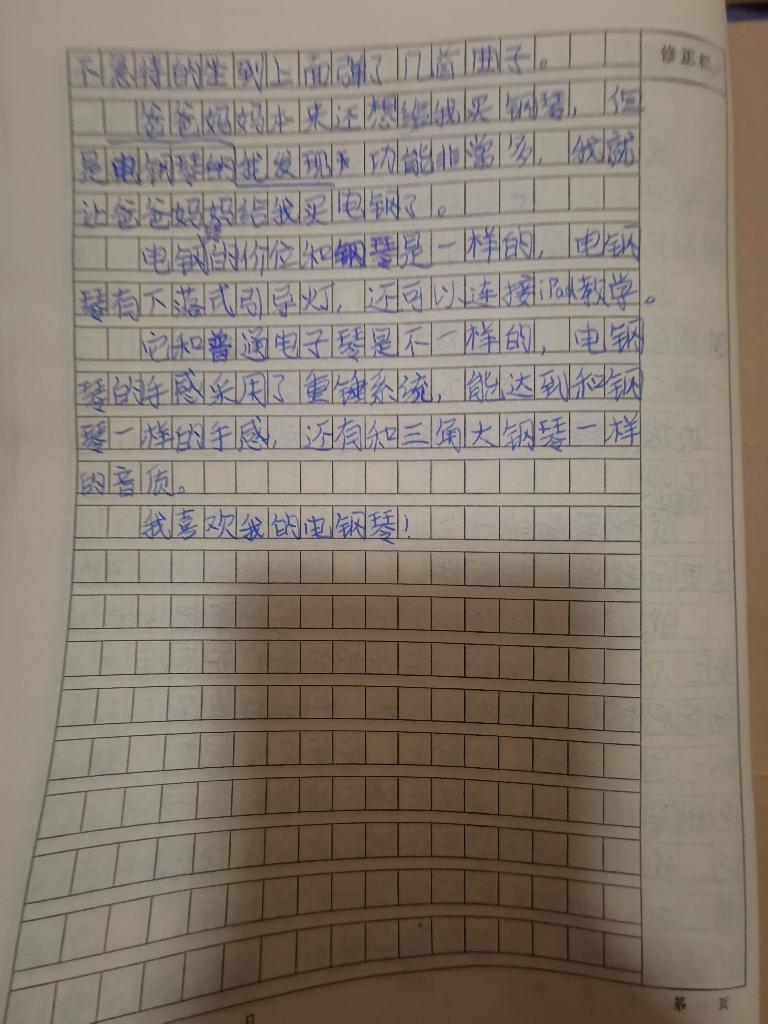 不急待的坐到上面弹了几首曲子。
修正栏
爸爸妈妈本来还想给我买钢琴，但
是电钢琴的我发现功能非常多，我就
让爸爸妈妈给我买电钢了。
电钢的价位和钢琴是一样的，电钢
琴有下落式引导灯，还可以连接iPad教学。
它和普通电子琴是不一样的，电钢
琴的手感采用了重锤系统，能达到和钢
琴一样的手感，还有和三角大钢琴一样
的音质。
我喜欢我的电钢琴！
第 页